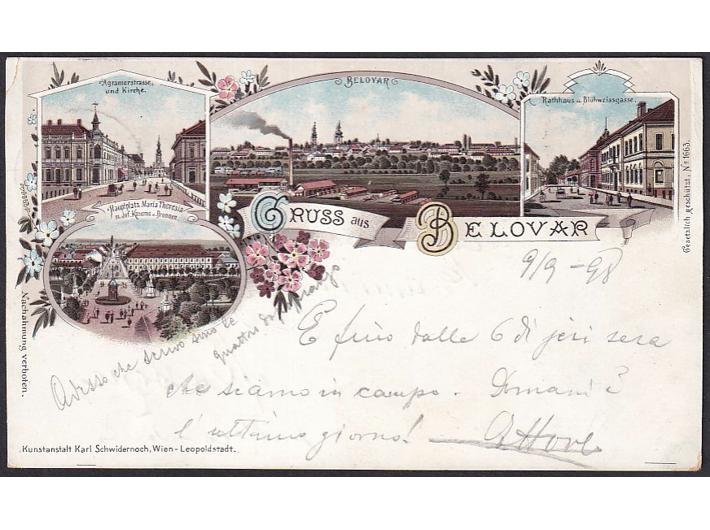 Agramerstrasse
und Kirche.
BELOVAR
Rathhaus u. Bluhweissgasse.
Hauptplatz Maria Theresia
m. Inf. Kaserne u. Brunnen.
GRUSS aus BELOVAR
Gesetzlich geschützt. No 1663.
Nachahmung verboten.
9/9-98
E fino dalle 6 di jeri sera
che siamo in campo. Domani è
l'ultimo giorno! Attore
Adesso che scrivo sono le
quattro di
Kunstanstalt Karl Schwidernoch, Wien-Leopoldstadt.